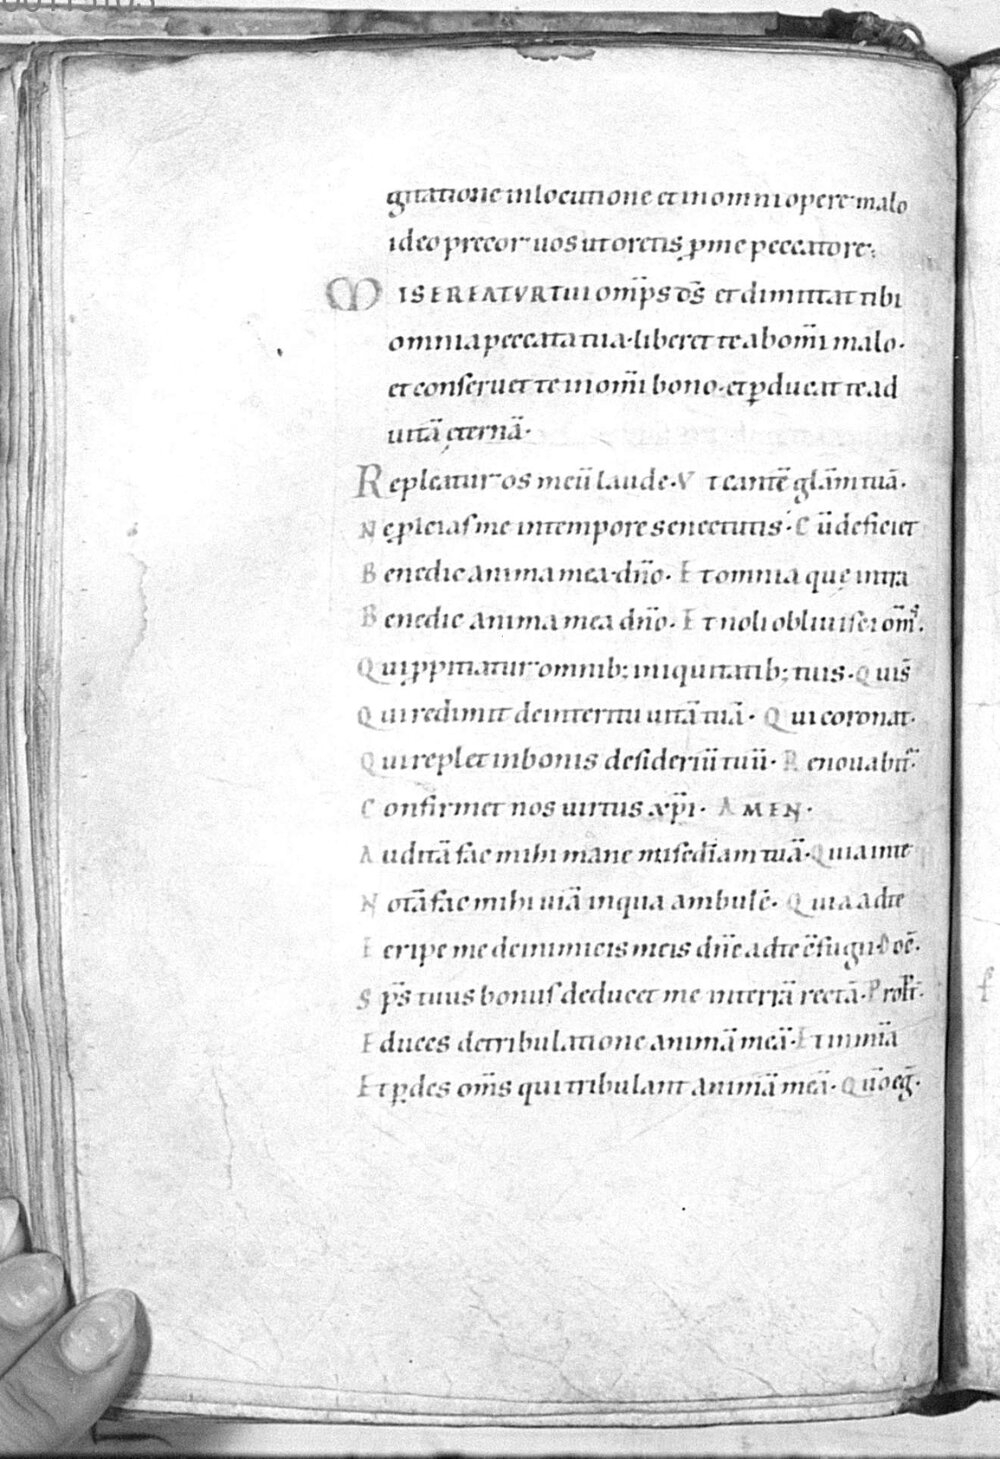 gitatione in locutione et in omni opere malo
ideo precor uos ut oretis ꝓ me peccatore;
MISEREATVR tui om̅ps d̅s et dimittat tibi
omnia peccata tua· liberet te ab om̅i malo·
et conseruet te in om̅i bono· et ꝑducat te ad
uitā ęternā·
Repleatur os meū laude· Vt cantē gl̅am tuā·
Ne ꝓieias me in tempore senectutis· Cū defieiet
Benedic anima mea dn̅o· Et omnia quę intra
Benedic anima mea dn̅o· Et noli obliuisci om̅s·
Qui ꝓpitiatur omnib; iniquitatib; tuis· Qui s̅
Qui redimit de interitu uitā tuā· Qui coronat·
Qui replet in bonis desideriū tuū· Renouabit̅·
Confirmet nos uirtus xp̅i· AMEN·
Auditā fac mihi mane mis̅ediam tuā· Quia in te
Notā fac mihi uiā in qua ambulē· Quia ad te
Eeripe me de inimicis meis dn̅e ad te c̅fugi· Doc̅·
Sp̅s tuus bonus deducet me in terrā rectā· Propt̅·
Educes de tribulatione animā meā· Et in mīa
Et ꝑdes om̅s qui tribulant animā meā· Qm̅o eg̅·